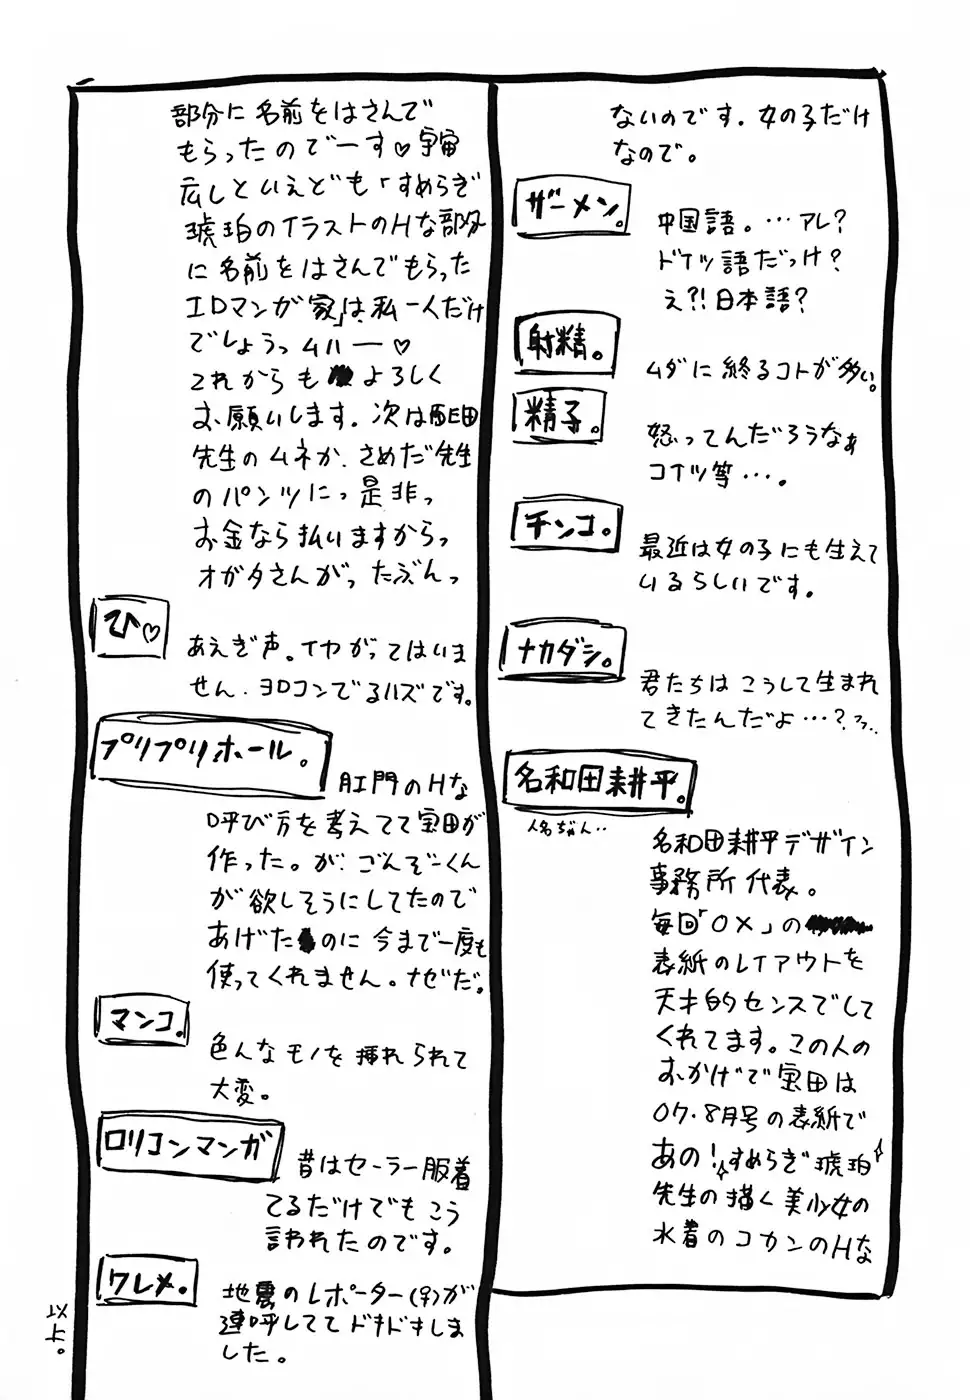 ないのです。女の子だけ
なので。
ザーメン。
中国語。…アレ?
ドイツ語だっけ?
え?!日本語?
射精。
ムダに終るコトが多い。
精子。
怒ってんだろうなぁ
コイツ等…。
チンコ。
最近は女の子にも生えて
いるらしいです。
ナカダシ。
君たちは こうして生まれ
てきたんだよ…?フフ..
名和田耕平。
人名ぢゃん..
名和田耕平デザイン
事務所代表。
毎回「OX」の
表紙のレイアウトを
天才的センスでして
くれてます。この人の
おかげで宝田は
07.8月号の表紙で
あの!すめらぎ琥珀
先生の描く美少女の
水着のコカンのHな
部分に名前をはさんで
もらったのでーす♡宇宙
広しといえども「すめらぎ
琥珀のイラストのHな部分
に名前をはさんでもらった
エロマンガ家」は、私一人だけ
でしょうっムハー♡
これからもよろしく
お願いします。次は
先生のムネか、さめだ先生
のパンツにっ是非っ
お金なら払いますからっ
オガタさんがったぶんっ
ひ♡
あえぎ声。イヤがってはいま
せん、ヨロコンでるハズです。
プリプリホール。
肛門のHな
呼び方を考えてて宝田が
作った。が、ごんぞーくん
が欲しそうにしてたので
あげたのに今まで一度も
使ってくれません。ナゼだ。
マンコ。
色んなモノを挿れられて
大変。
ロリコンマンガ
昔はセーラー服着
てるだけでもこう
言われたのです。
ワレメ。
地震のレポーター(♀)が
連呼しててドキドキしま
した。